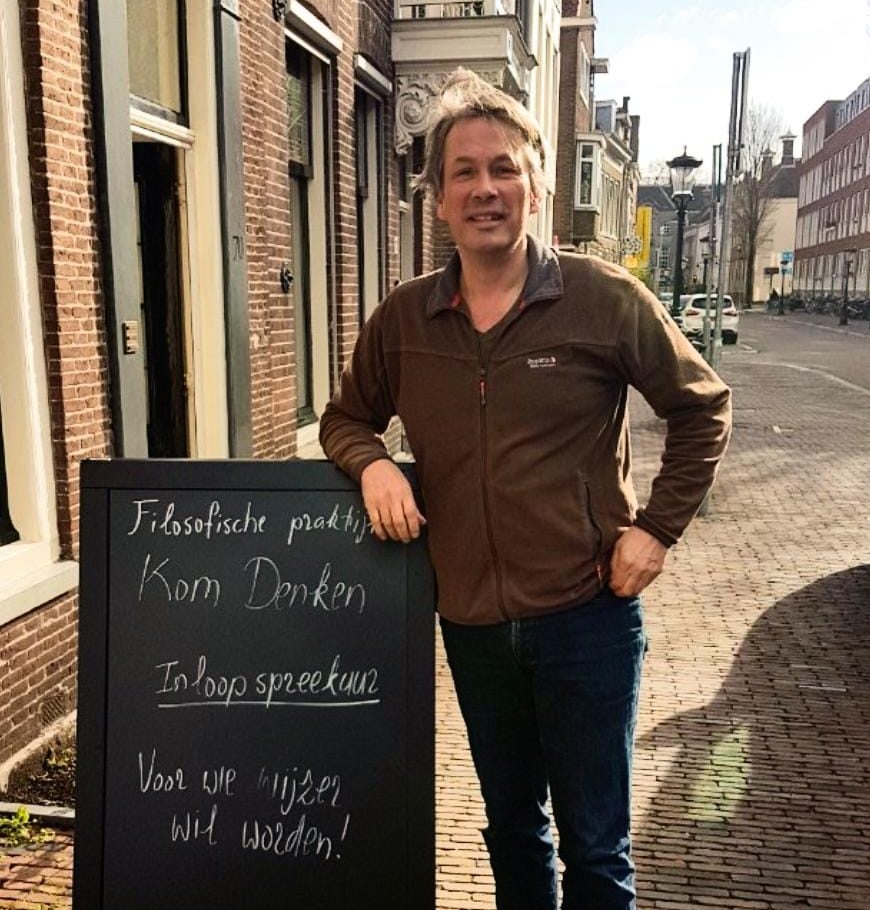 Filosofische praktijk
Kom Denken
Inloopspreekuur
Voor wie wijzer
wil worden!